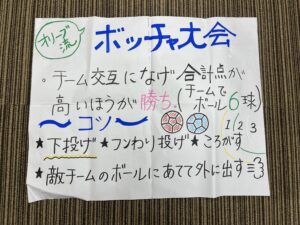 オリーブ流
ボッチャ大会
。チーム交互になげ合計点が
高いほうが勝ち.
(チームでボール6球)
〜コツ〜
1 2 3
★下投げ ★フンわり投げ ★ころがす
★敵チームのボールにあてて外に出す